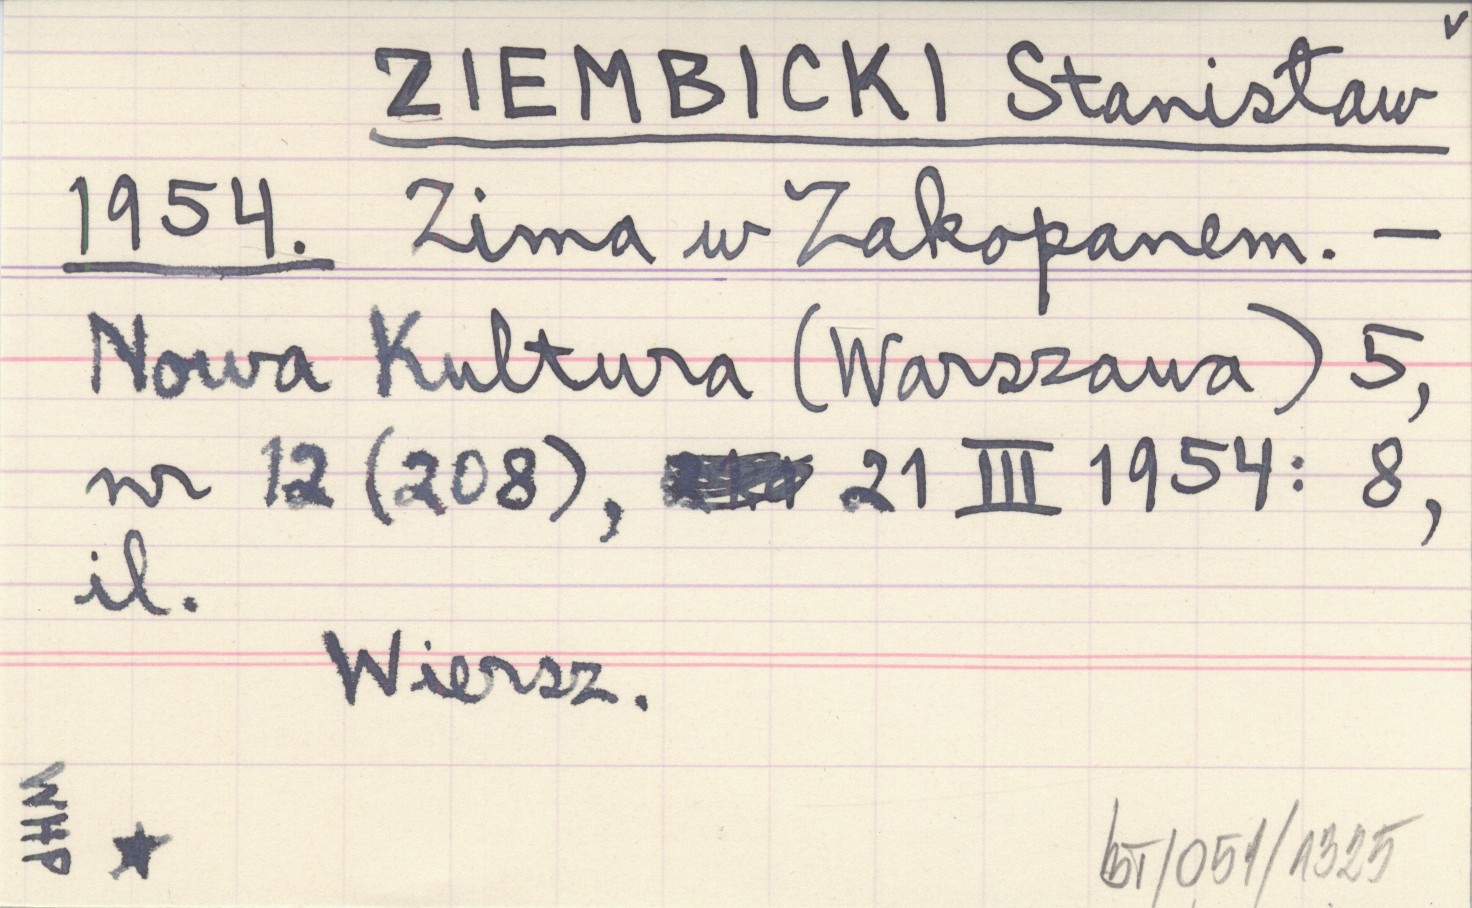 ZIEMBICKI Stanisław
1954. Zima w Zakopanem. —
Nowa Kultura (Warszawa) 5,
nr 12 (208), 21 III 1954: 8,
il.
Wiersz.
WHP
BT/051/1325